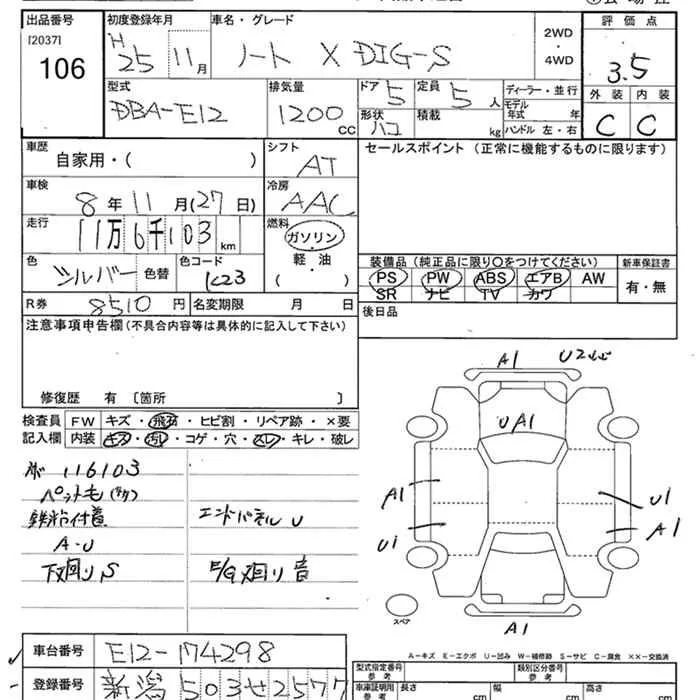 出品番号 初度登録年月 車名・グレード 評価点
[2037] H
106 25 11月 ノート X DIG-S 2WD ・ 4WD 3.5
型式 排気量 ドア 5 定員 5人 ディーラー・並行 外装 内装
DBA-E12 1200cc 形状 ハコ 積載 kg モデル年式 年 C C
ハンドル 左・右
車歴 自家用・( ) シフト AT セールスポイント(正常に機能するものに限ります)
車検 8年11月(27日) 冷房 AAC
走行 11万6千103km 燃料 ガソリン・軽油 ( )
色 シルバー 色替 色コード K23
装備品(純正品に限り○をつけてください) 新車保証書
PS PW ABS エアB AW 有・無
SR ナビ TV カワ
R券 8510円 名変期限 月 日 後日品
注意事項申告欄(不具合内容等は具体的に記入して下さい)
修復歴 有 [箇所 ]
検査員 FW キズ・飛石・ヒビ割・リペア跡・×要
記入欄 内装 キズ・汚レ・コゲ・穴・スレ・キレ・破レ
116103
ペット毛
鉄粉付着 エンドパネル U
A-U
下廻り S E/G廻り音
A1 U2
UA1
A1 U1
U1 A1
A1
スペア
A-キズ E-エクボ U-凹み W-補修跡 S-サビ C-腐食 ××-交換済
車台番号 E12-174298
登録番号 新潟 503せ2577
型式指定番号 参考 類別区分番号 参考
車庫証明用 参考 長さ cm 幅 cm 高さ cm